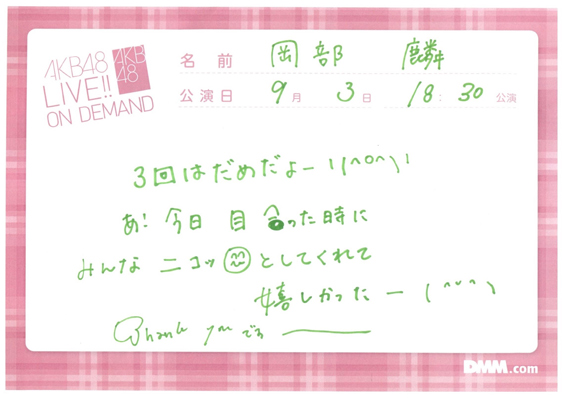 AKB48
LIVE!!
ON DEMAND
AKB
48
名前 岡部 麟
公演日 9月 3日 18:30 公演
3回はだめだよー !(^o^)!
あ! 今日 目合った時に
みんな ニコッ としてくれて
嬉しかったー (^ᵕ^)
Thank
DMM.com